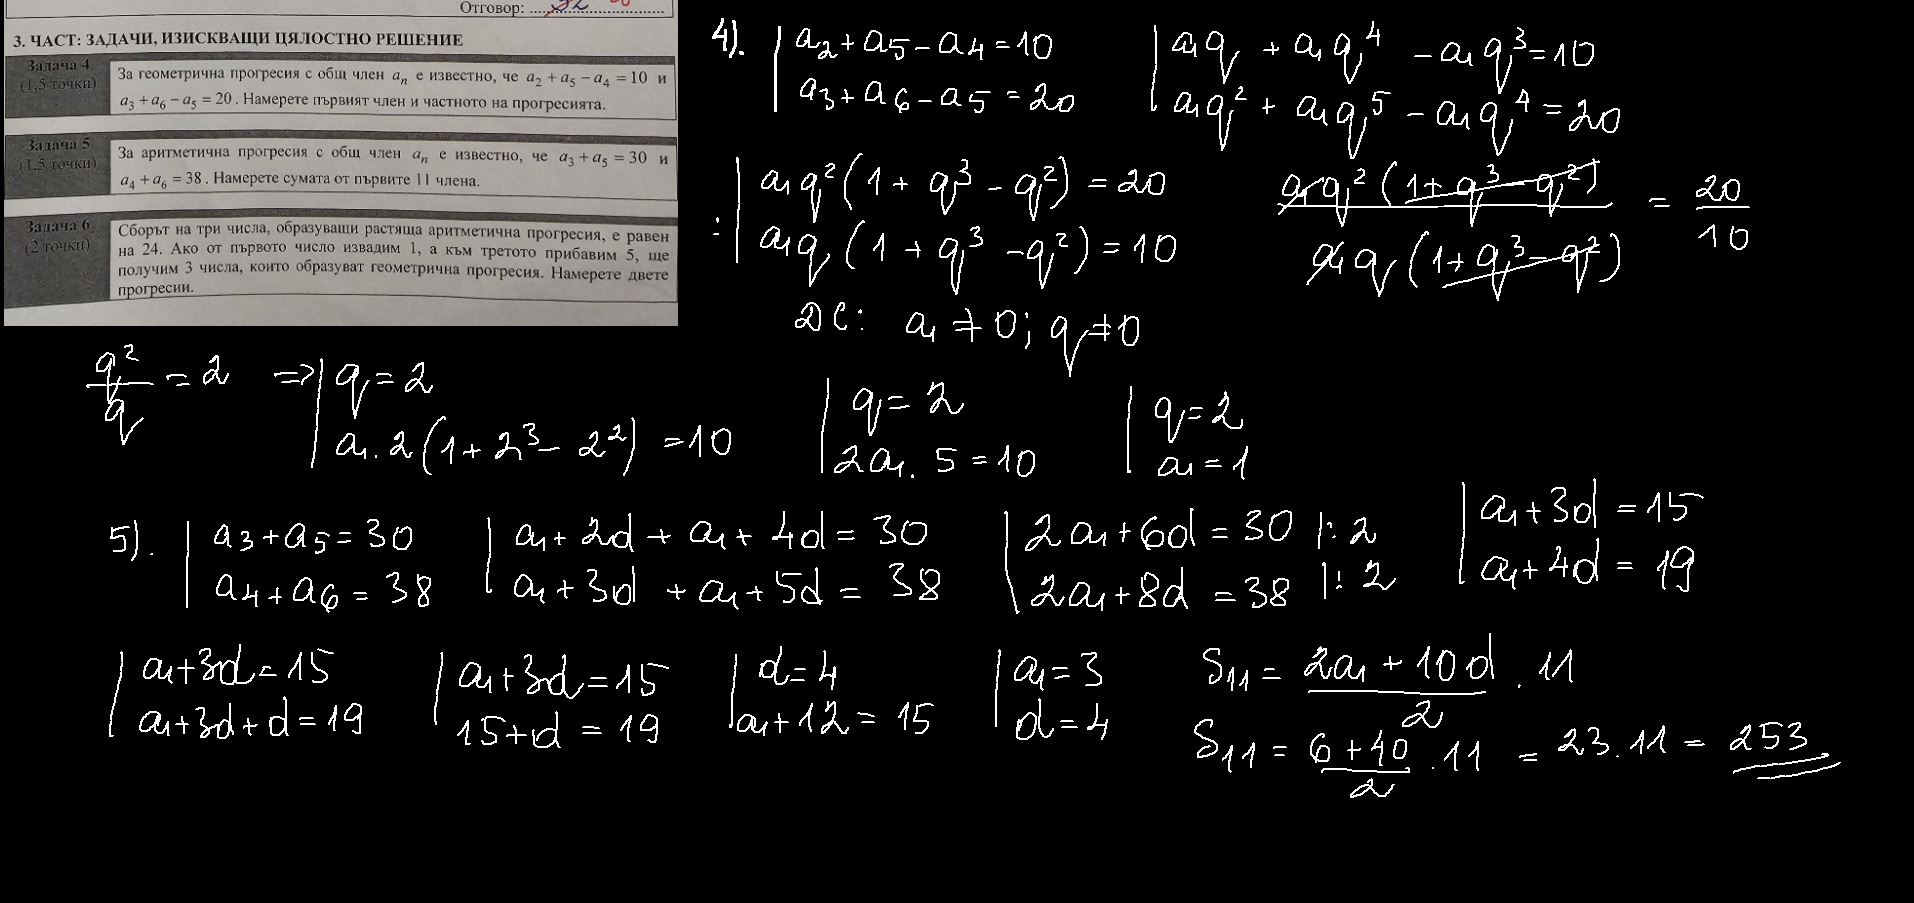 Отговор: ..... 32 .....
3. ЧАСТ: ЗАДАЧИ, ИЗИСКВАЩИ ЦЯЛОСТНО РЕШЕНИЕ
Задача 4
(1,5 точки)
За геометрична прогресия с общ член aₙ е известно, че a₂ + a₅ − a₄ = 10 и
a₃ + a₆ − a₅ = 20. Намерете първият член и частното на прогресията.
Задача 5
(1,5 точки)
За аритметична прогресия с общ член aₙ е известно, че a₃ + a₅ = 30 и
a₄ + a₆ = 38. Намерете сумата от първите 11 члена.
Задача 6
(2 точки)
Сборът на три числа, образуващи растяща аритметична прогресия, е равен
на 24. Ако от първото число извадим 1, а към третото прибавим 5, ще
получим 3 числа, които образуват геометрична прогресия. Намерете двете
прогресии.
4). | a₂ + a₅ − a₄ = 10
| a₃ + a₆ − a₅ = 20
| a₁q + a₁q⁴ − a₁q³ = 10
| a₁q² + a₁q⁵ − a₁q⁴ = 20
: | a₁q²(1 + q³ − q²) = 20
| a₁q(1 + q³ − q²) = 10
a₁q²(1 + q³ − q²) / a₁q(1 + q³ − q²) = 20/10
ДС: a₁ ≠ 0; q ≠ 0
q²/q = 2 => | q = 2
| a₁.2(1 + 2³ − 2²) = 10
| q = 2
| 2a₁.5 = 10
| q = 2
| a₁ = 1
5). | a₃ + a₅ = 30
| a₄ + a₆ = 38
| a₁ + 2d + a₁ + 4d = 30
| a₁ + 3d + a₁ + 5d = 38
| 2a₁ + 6d = 30 |: 2
| 2a₁ + 8d = 38 |: 2
| a₁ + 3d = 15
| a₁ + 4d = 19
| a₁ + 3d = 15
| a₁ + 3d + d = 19
| a₁ + 3d = 15
| 15 + d = 19
| d = 4
| a₁ + 12 = 15
| a₁ = 3
| d = 4
S₁₁ = (2a₁ + 10d)/2 . 11
S₁₁ = (6 + 40)/2 . 11 = 23.11 = 253